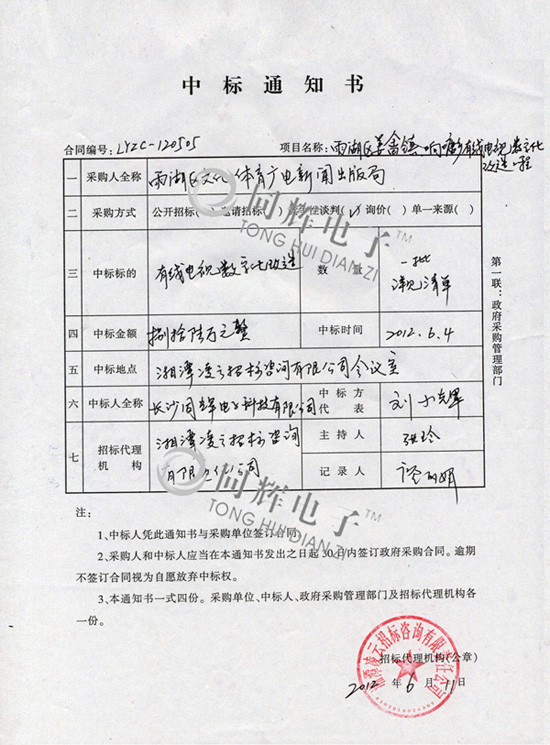 中标通知书
合同编号：LYZC-120505 项目名称：雨湖区姜畲镇响塘乡有线电视数字化
改造工程
一 采购人全称 雨湖区文化体育广电新闻出版局
二 采购方式 公开招标( )邀请招标( )竞争性谈判(√)询价( )单一来源( )
三 中标标的 有线电视数字化改造 数量 一批
详见清单
四 中标金额 捌拾陆万元整 中标时间 2012.6.4
五 中标地点 湘潭凌云招标咨询有限公司会议室
六 中标人全称 长沙同辉电子科技有限公司 中标方
代表 刘
七 招标代理
机构 湘潭凌云招标咨询
有限责任公司 主持人 张玲
记录人
第一联：政府采购管理部门
同辉电子™
TONG HUI DIAN ZI
同辉电子™
TONG HUI DIAN ZI
注：
1、中标人凭此通知书与采购单位签订合同。
2、采购人和中标人应当在本通知书发出之日起30日内签订政府采购合同。逾期
不签订合同视为自愿放弃中标权。
3、本通知书一式四份。采购单位、中标人、政府采购管理部门及招标代理机构各
一份。
湘潭凌云招标咨询有限责任公司
招标代理机构(公章)
2012年6月11日